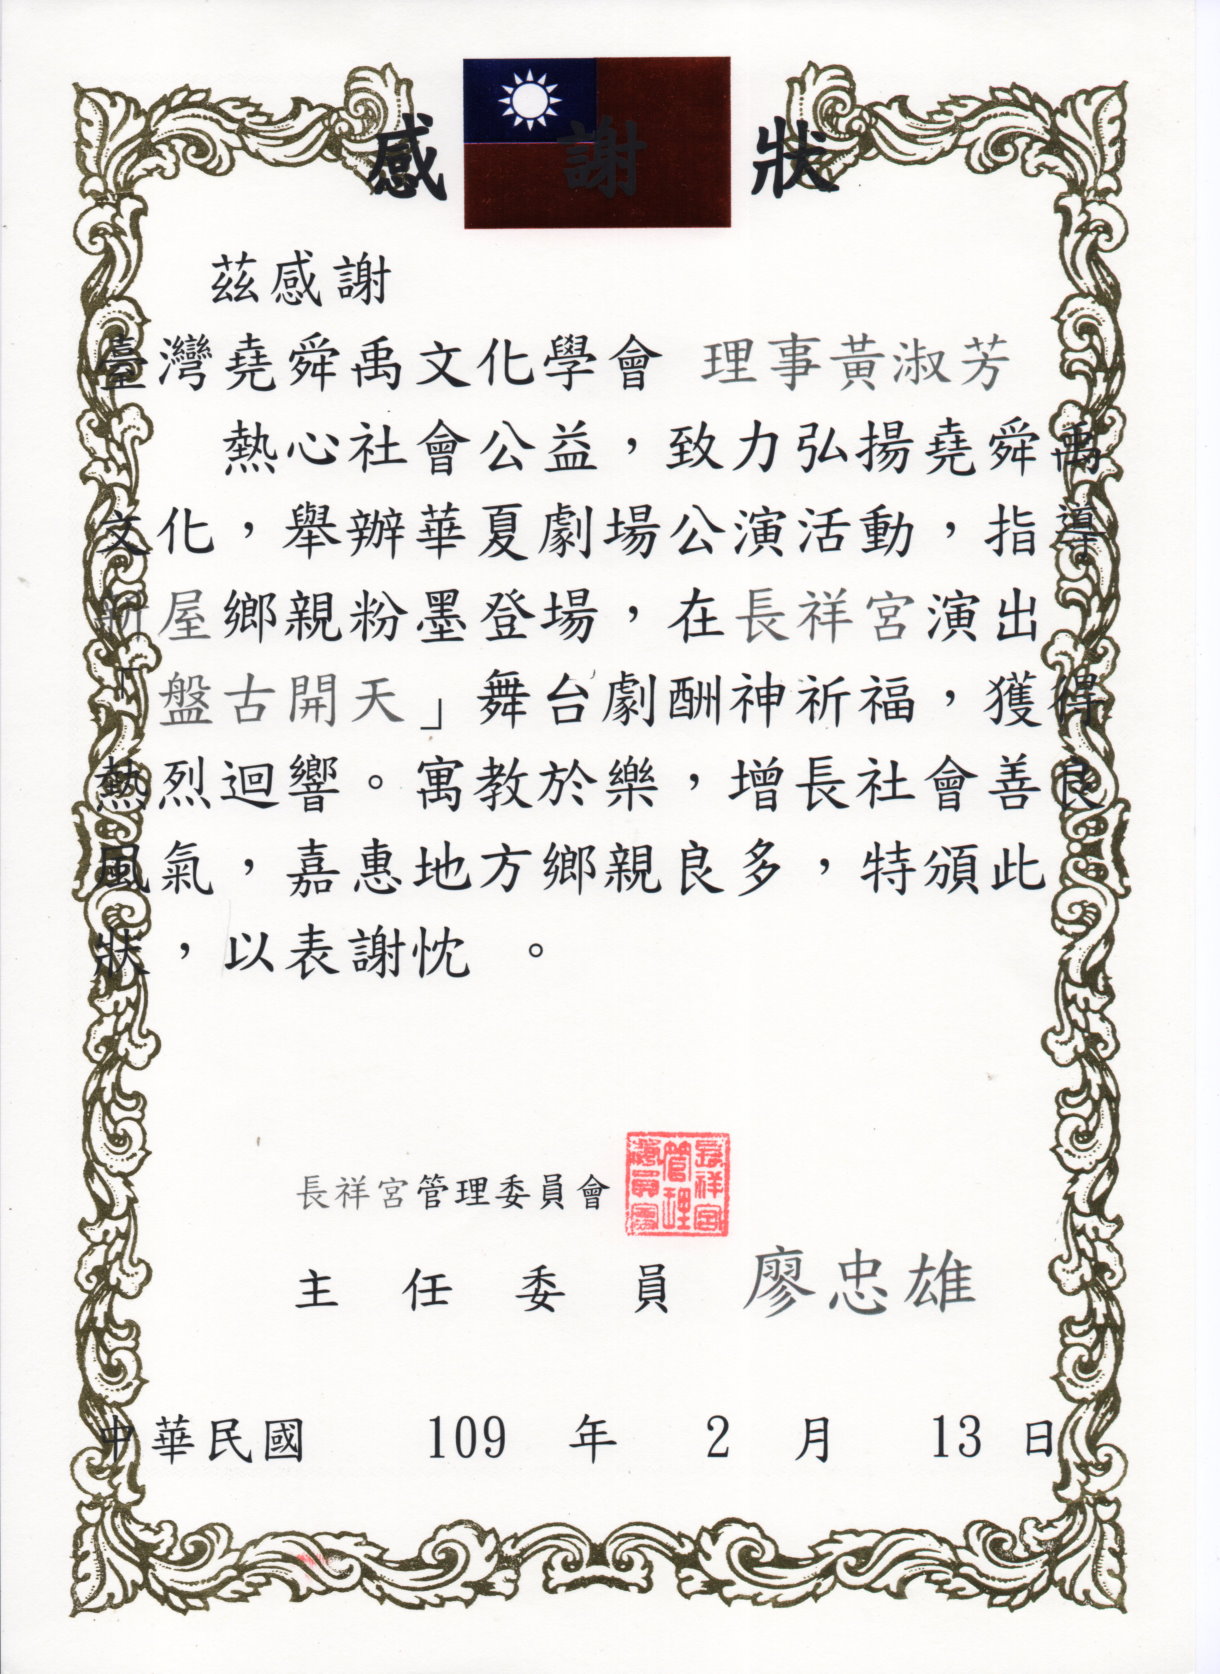 感謝狀
茲感謝
臺灣堯舜禹文化學會 理事黃淑芳
熱心社會公益，致力弘揚堯舜禹
文化，舉辦華夏劇場公演活動，指導
新屋鄉親粉墨登場，在長祥宮演出
「盤古開天」舞台劇酬神祈福，獲得
熱烈迴響。寓教於樂，增長社會善良
風氣，嘉惠地方鄉親良多，特頒此
狀，以表謝忱 。
長祥宮管理委員會
長祥宮管理委員會
主任委員 廖忠雄
中華民國 109 年 2 月 13 日